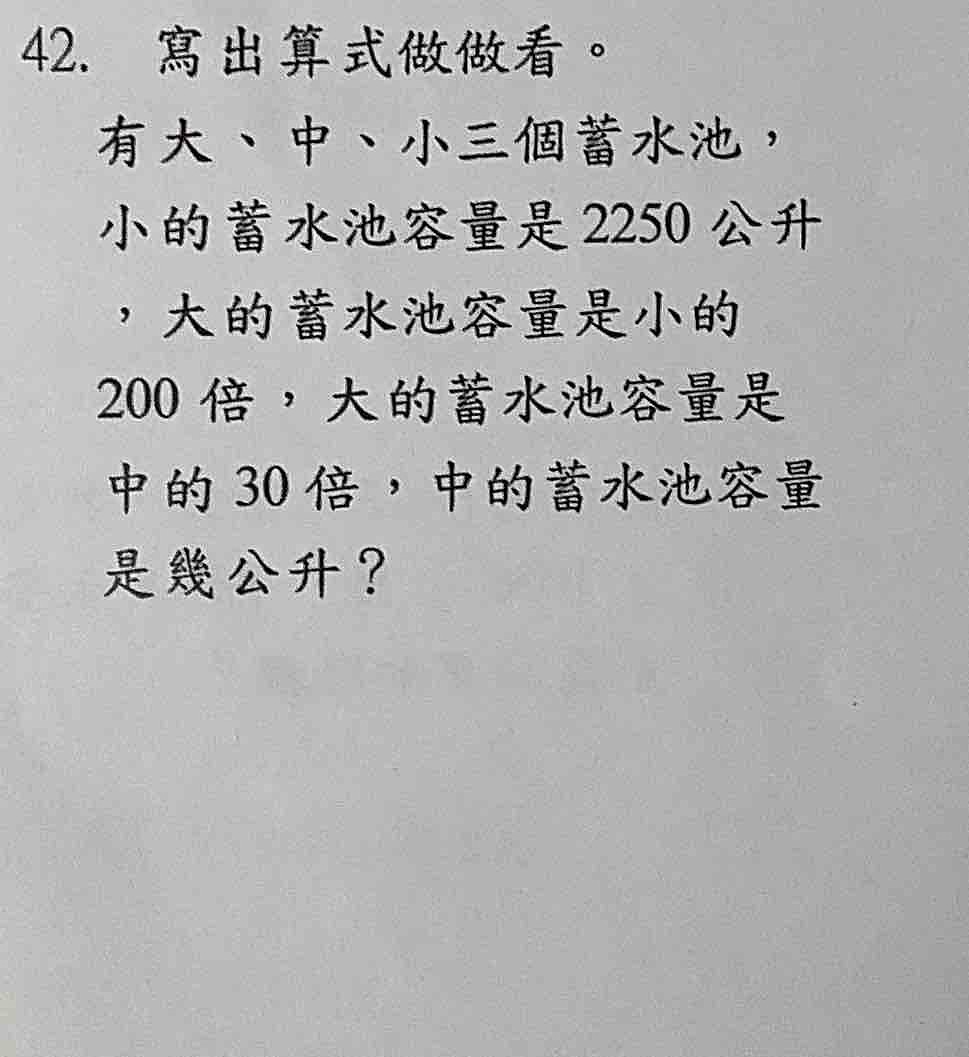 42. 寫出算式做做看。
有大、中、小三個蓄水池，
小的蓄水池容量是2250公升
，大的蓄水池容量是小的
200倍，大的蓄水池容量是
中的30倍，中的蓄水池容量
是幾公升？